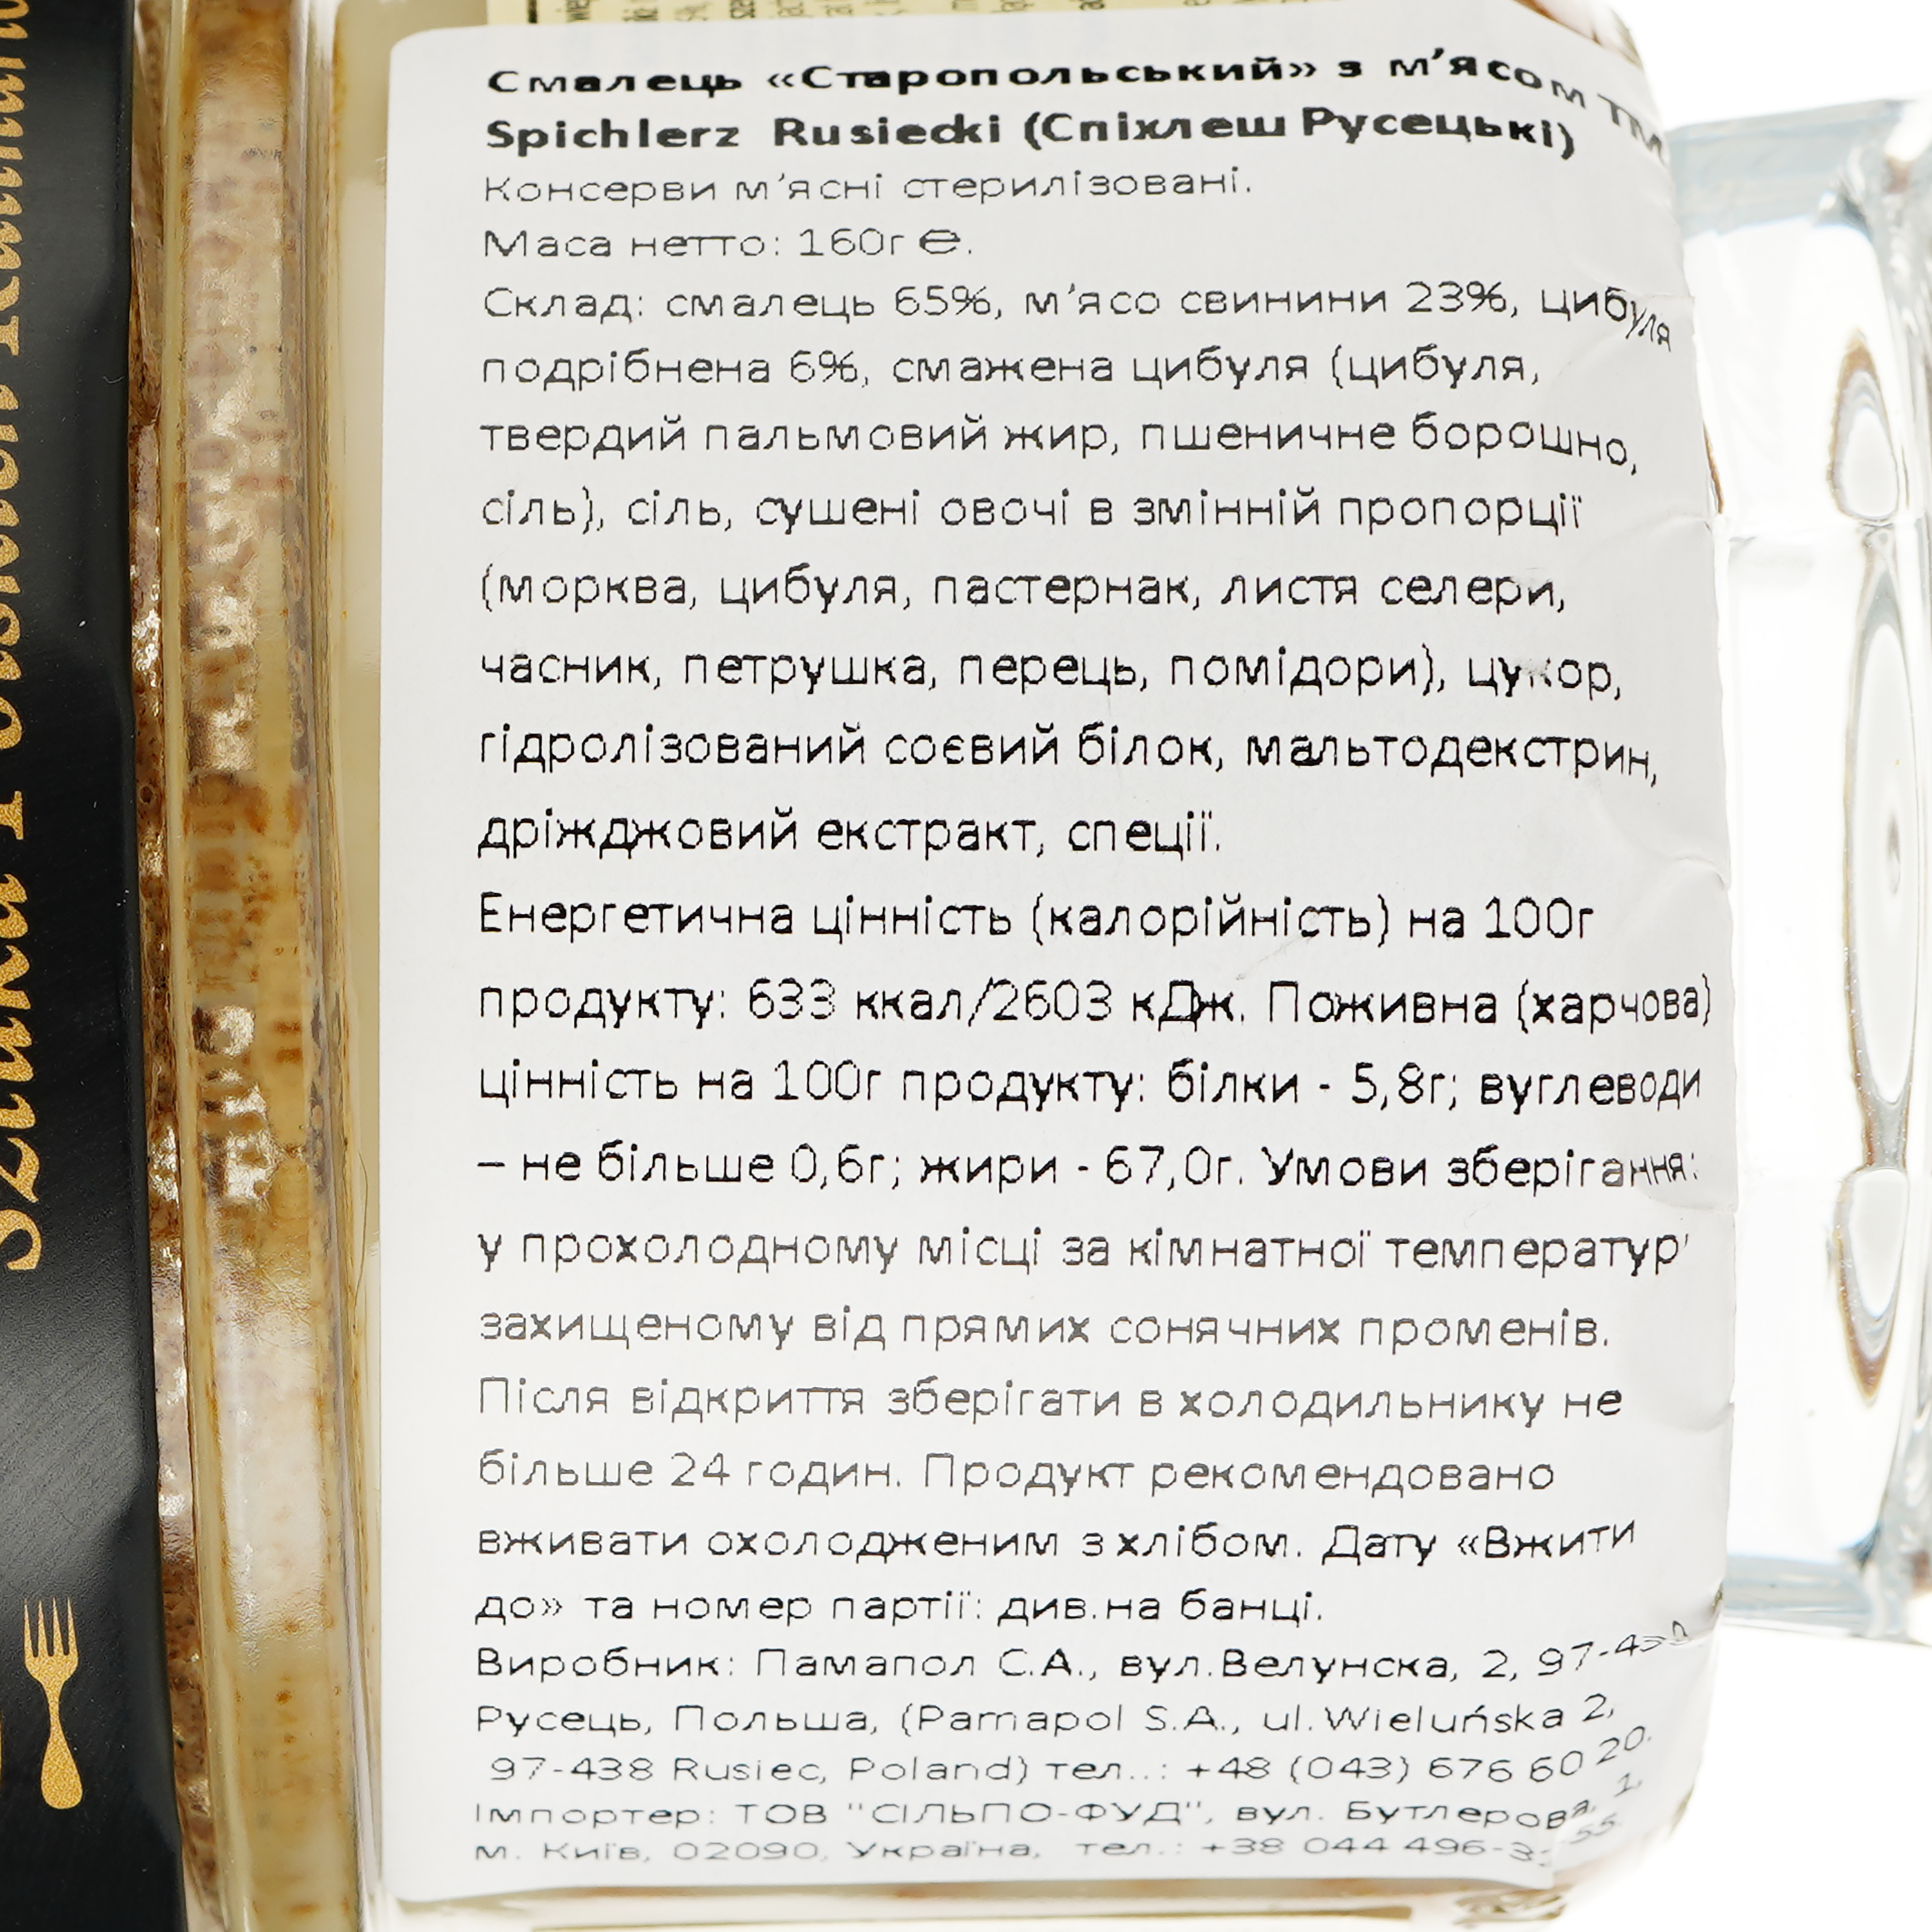 Смалець «Старопольський» з м'ясом ТМ
Spichlerz Rusiecki (Спіхлеш Русецькі)
Консерви м'ясні стерилізовані.
Маса нетто: 160г ℮.
Склад: смалець 65%, м'ясо свинини 23%, цибуля
подрібнена 6%, смажена цибуля (цибуля,
твердий пальмовий жир, пшеничне борошно,
сіль), сіль, сушені овочі в змінній пропорції
(морква, цибуля, пастернак, листя селери,
часник, петрушка, перець, помідори), цукор,
гідролізований соєвий білок, мальтодекстрин,
дріжджовий екстракт, спеції.
Енергетична цінність (калорійність) на 100г
продукту: 633 ккал/2603 кДж. Поживна (харчова)
цінність на 100г продукту: білки - 5,8г; вуглеводи
– не більше 0,6г; жири - 67,0г. Умови зберігання:
у прохолодному місці за кімнатної
захищеному від прямих сонячних променів.
Після відкриття зберігати в холодильнику не
більше 24 годин. Продукт рекомендовано
вживати охолодженим з хлібом. Дату «Вжити
до» та номер партії: див.на банці.
Виробник: Памапол С.А., вул.Велунска, 2,
Русець, Польша, (Pamapol S.A., ul.Wieluńska 2,
97-438 Rusiec, Poland) тел..: +48 (043) 676 60 20.
Імпортер: ТОВ "СІЛЬПО-ФУД", вул. Бутлерова, 1,
м. Київ, 02090, Україна, тел.: +38 044